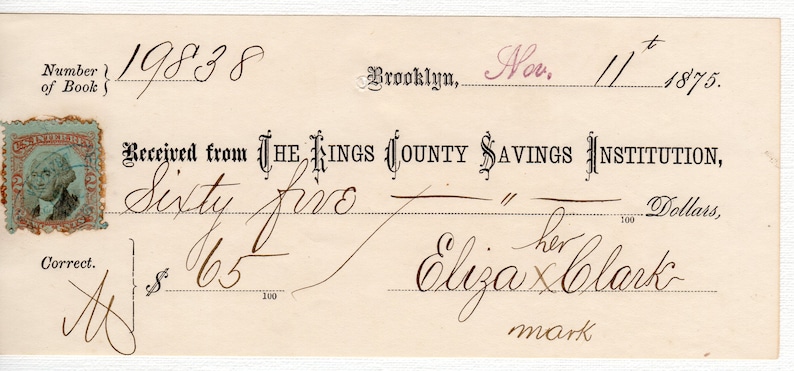 Number of Book } 19838
Brooklyn, Nov. 11t 1875.
Received from The Kings County Savings Institution,
Sixty five — " — 100 Dollars,
Correct.
$ 65 100
her
Eliza x Clark
mark